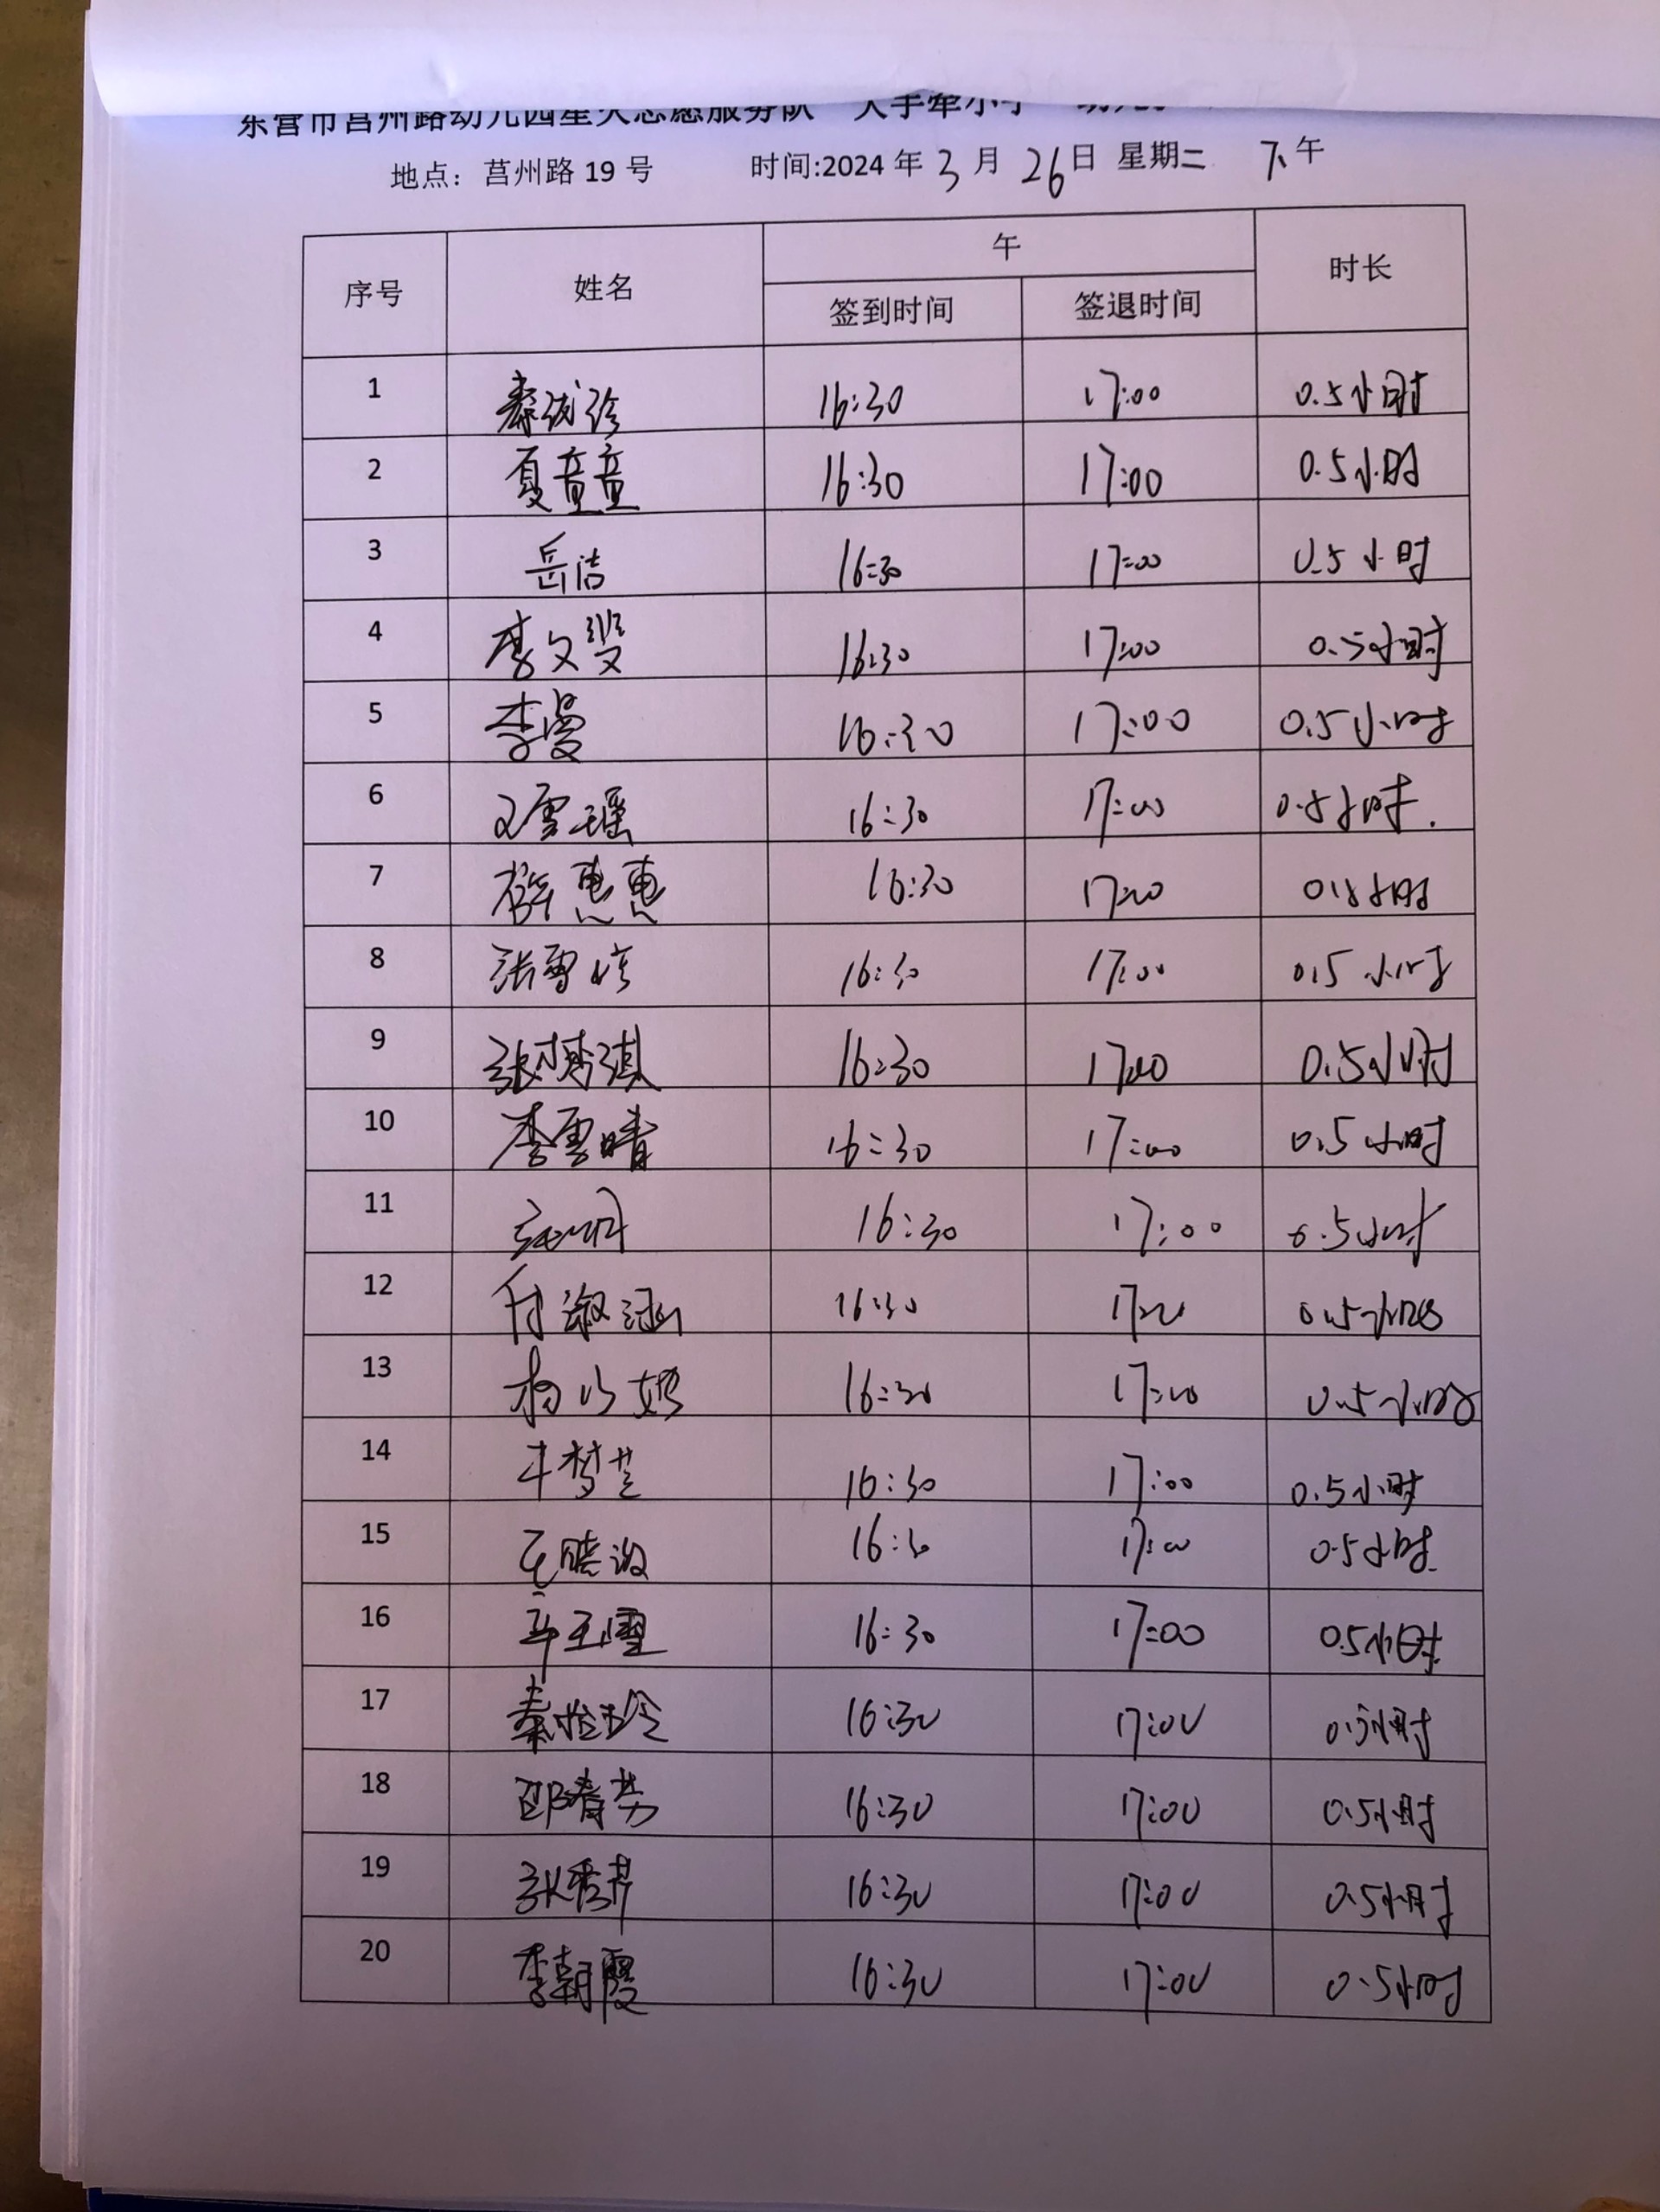 东营市莒州路幼儿园星火志愿服务队 大手牵小手
地点：莒州路 19 号 时间:2024 年 3 月 26 日 星期二 下午
序号 姓名 午 时长
签到时间 签退时间
1 16:30 17:00 0.5小时
2 夏童童 16:30 17:00 0.5小时
3 岳洁 16:30 17:00 0.5小时
4 李文斐 16:30 17:00 0.5小时
5 李曼 16:30 17:00 0.5小时
6 16:30 17:00 0.5小时
7 薛惠惠 16:30 17:00 0.5小时
8 16:30 17:00 0.5小时
9 16:30 17:00 0.5小时
10 李雪晴 16:30 17:00 0.5小时
11 16:30 17:00 0.5小时
12 付淑涵 16:30 17:00 0.5小时
13 16:30 17:00 0.5小时
14 16:30 17:00 0.5小时
15 16:30 17:00 0.5小时
16 16:30 17:00 0.5小时
17 16:30 17:00 0.5小时
18 邵春芳 16:30 17:00 0.5小时
19 张秀芹 16:30 17:00 0.5小时
20 李朝霞 16:30 17:00 0.5小时